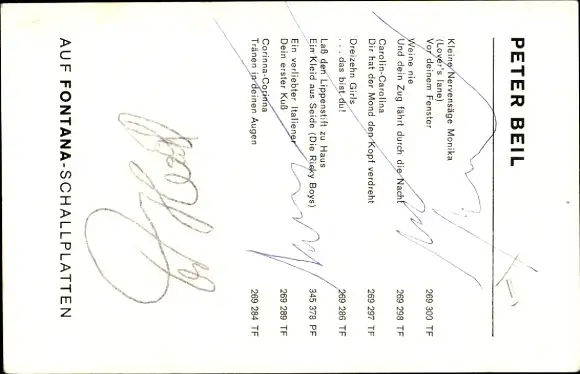 PETER BEIL
Kleine Nervensäge Monika
(Lover's lane)
Vor deinem Fenster 269 300 TF
Weine nie
Und dein Zug fährt durch die Nacht 269 298 TF
Carolin-Carolina
Dir hat der Mond den Kopf verdreht 269 297 TF
Dreizehn Girls
. . . das bist du! 269 286 TF
Laß den Lippenstift zu Haus
Ein Kleid aus Seide (Die Ricky Boys) 345 378 PF
Ein verliebter Italiener
Dein erster Kuß 269 289 TF
Corinna-Corinna
Tränen in deinen Augen 269 284 TF
AUF FONTANA-SCHALLPLATTEN